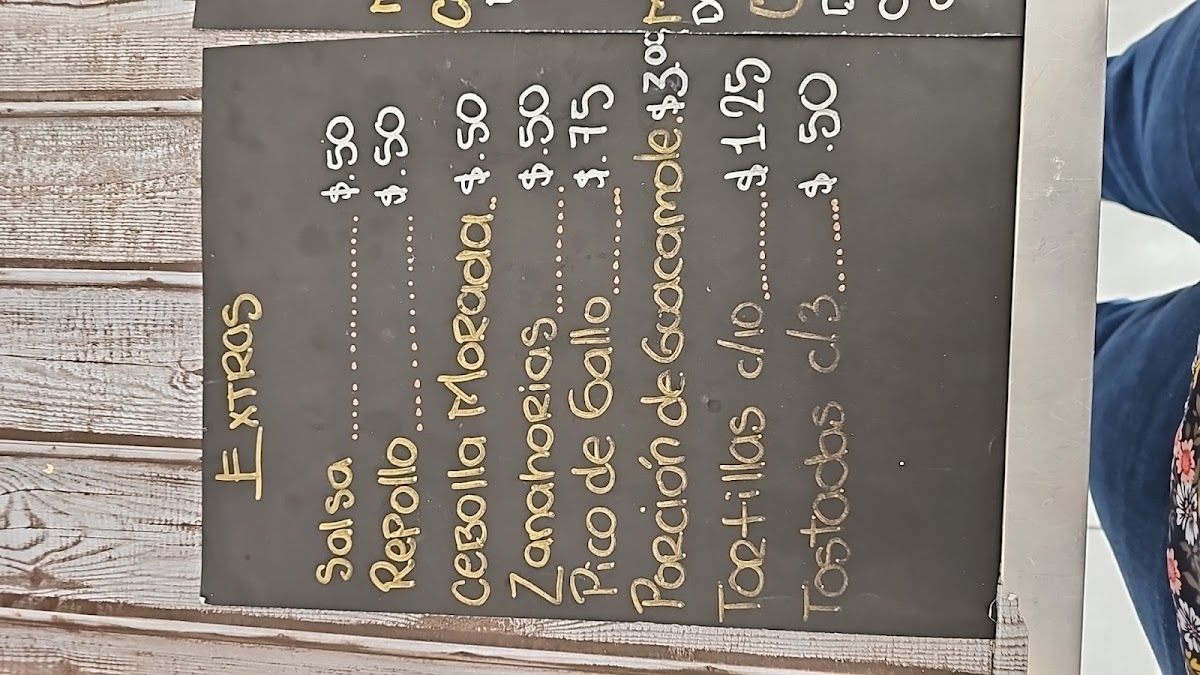 Extras
Salsa ............... $.50
Repollo ............. $.50
Cebolla Morada.. $.50
Zanahorias ........ $.50
Pico de Gallo ....... $.75
Porción de Guacamole. $3.00
Tortillas c/10 ........ $1.25
Tostadas c/3 ....... $.50